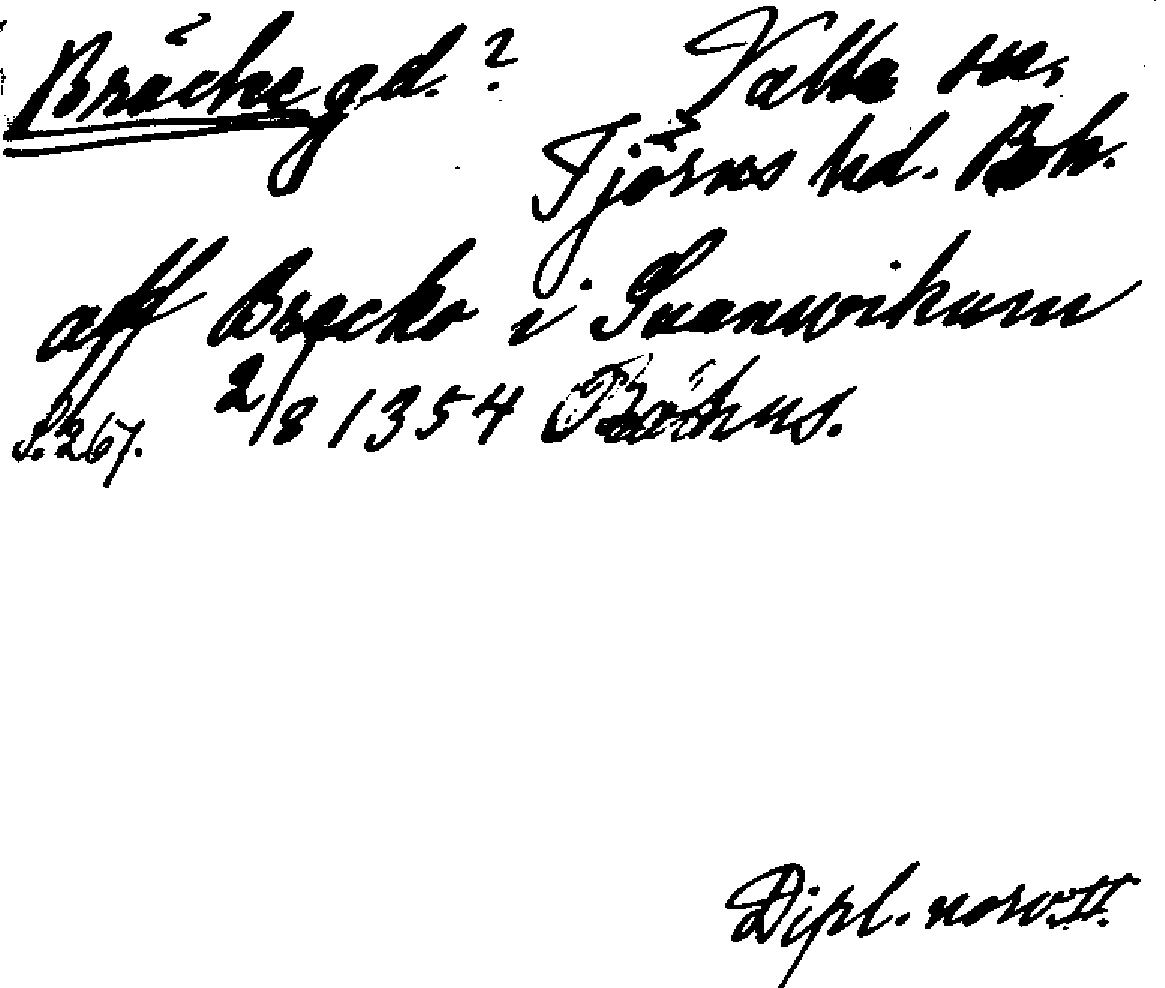 Bräcke gd.? Valla sn,
Tjörns hd. Boh.
aff Brecko i Suanwikum
S. 267. 2/8 1354 Båhus.
Dipl. norv. II.